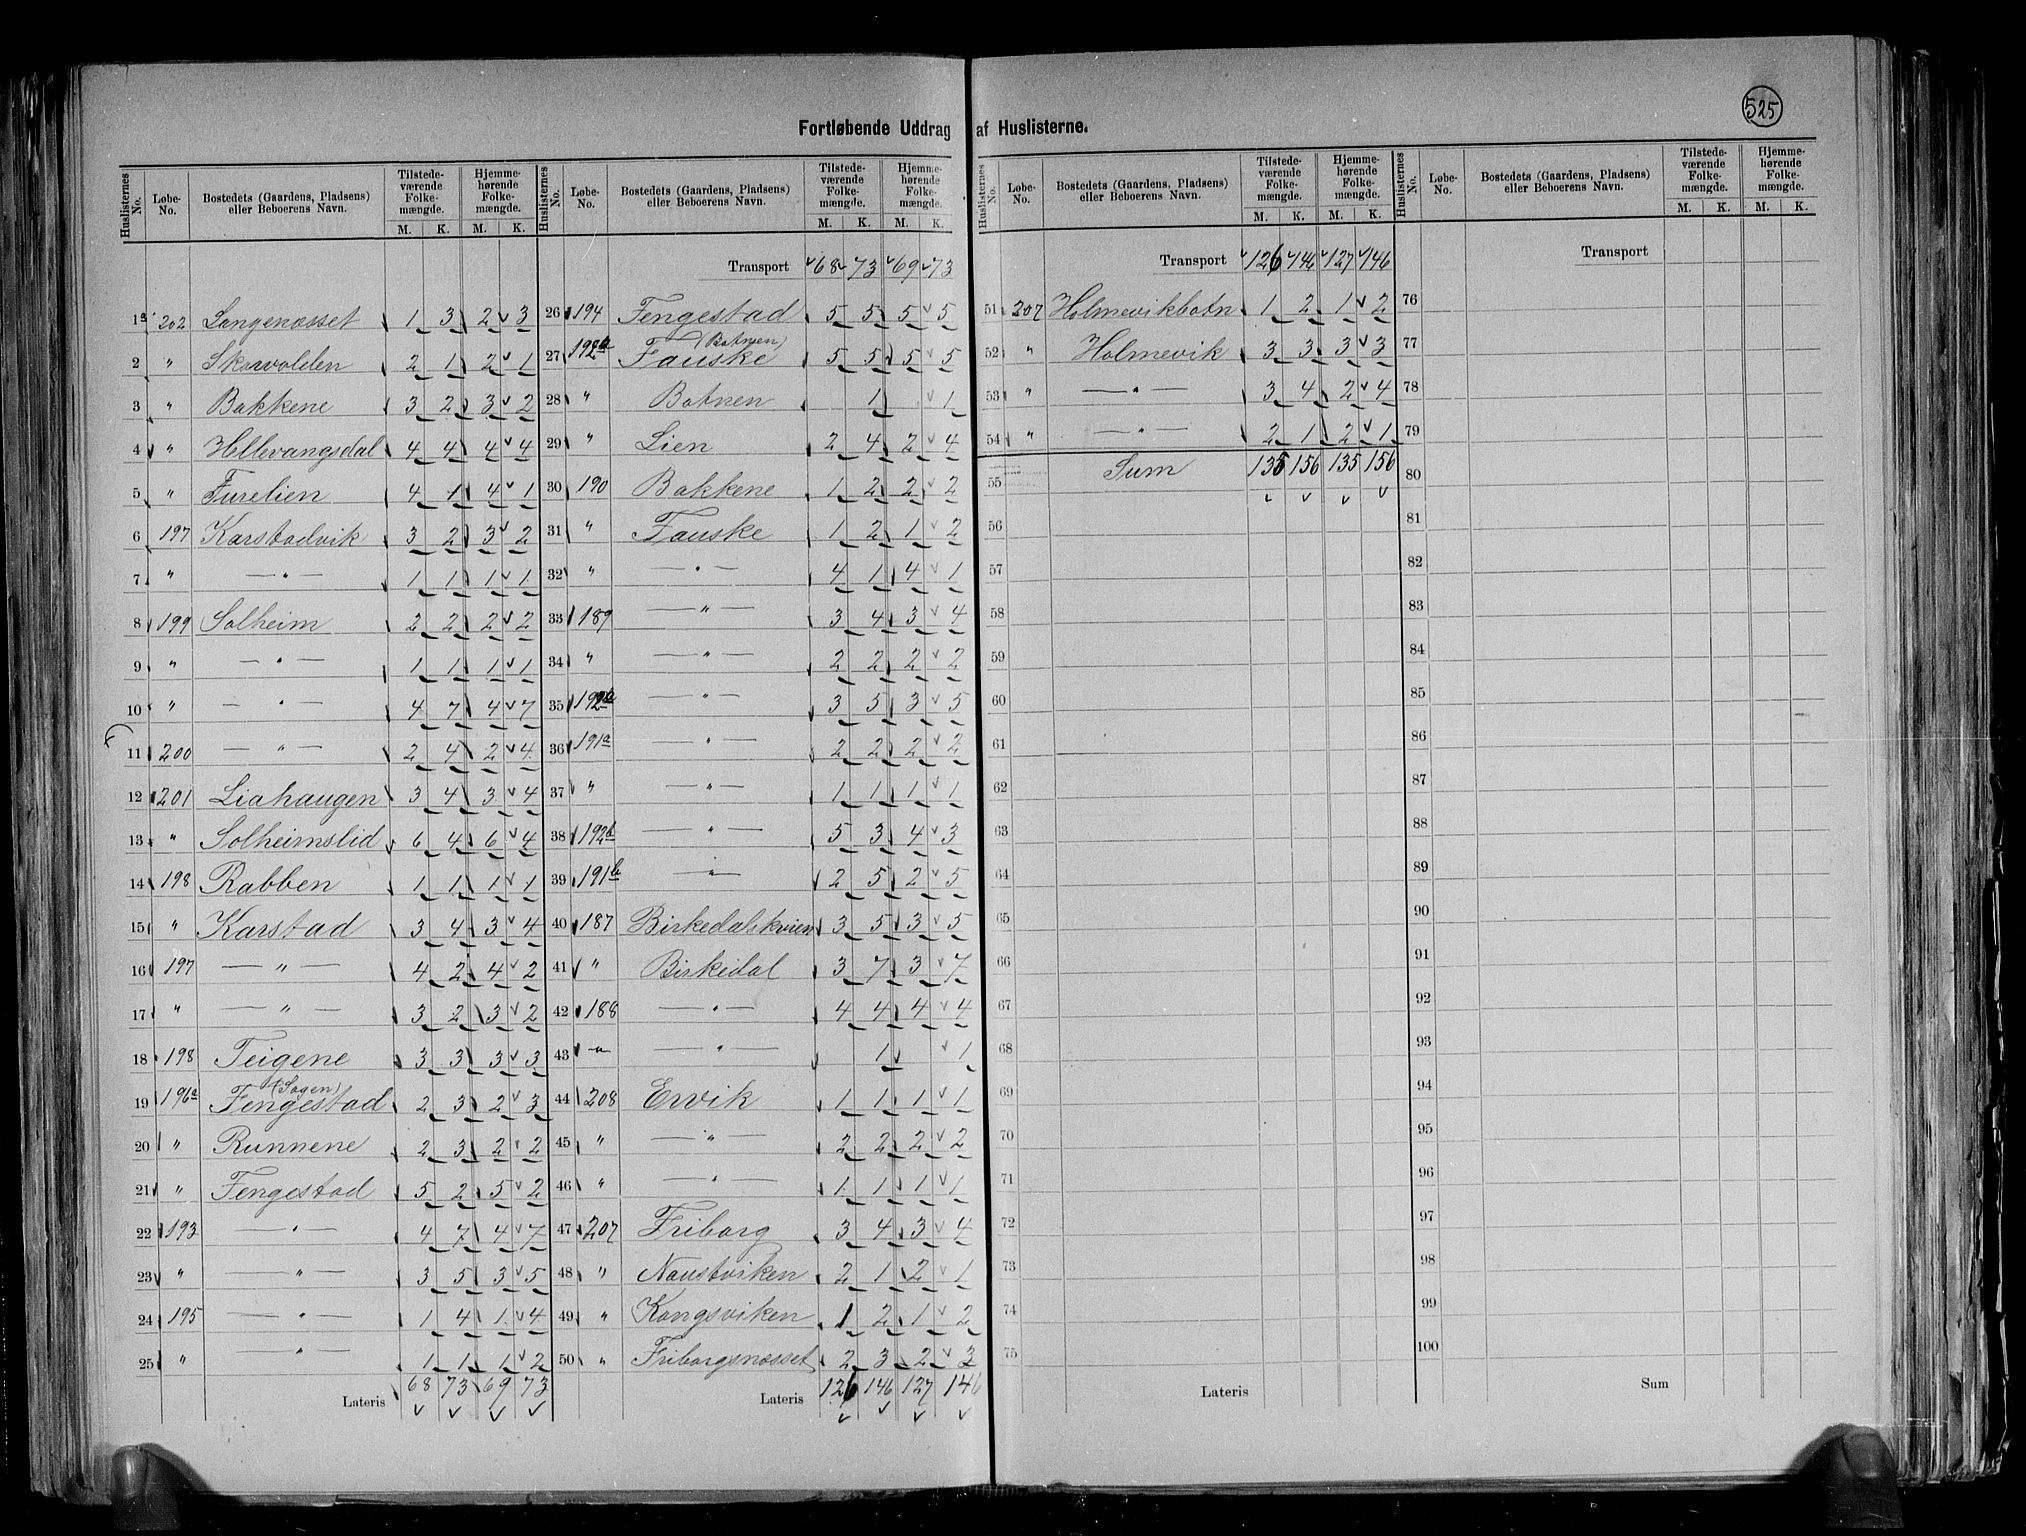 525
Fortløbende Uddrag af Huslisterne.
Huslisternes No. | Løbe-No. | Bostedets (Gaardens, Pladsens) eller Beboerens Navn. | Tilstede-værende Folke-mængde. M. K. | Hjemme-hørende Folke-mængde. M. K.
1 202 Langenæsset 1 3 2 3
2 " Skorvolden 2 1 2 1
3 " Bakkene 3 2 3 2
4 " Hellevangsdal 4 4 4 4
5 " Furelien 4 1 4 1
6 197 Karstadvik 3 2 3 2
7 " — " — 1 1 1 1
8 199 Solheim 2 2 2 2
9 " — " — 1 1 1 1
10 " — " — 4 7 4 7
11 200 — " — 2 4 2 4
12 201 Liahaugen 3 4 3 4
13 " Solheimslid 6 4 6 4
14 198 Rabben 1 1 1 1
15 " Karstad 3 4 3 4
16 197 — " — 4 2 4 2
17 " — " — 3 2 3 2
18 198 Teigene 3 3 3 3
19 196a Fengestad (Sagen) 2 3 2 3
20 " Runnene 2 3 2 2
21 " Fengestad 5 2 5 2
22 193 — " — 4 7 4 7
23 " — " — 3 5 3 5
24 195 — " — 1 4 1 4
25 " — " — 1 1 1 2
Lateris 68 73 69 73
Huslisternes No. | Løbe-No. | Bostedets (Gaardens, Pladsens) eller Beboerens Navn. | Tilstede-værende Folke-mængde. M. K. | Hjemme-hørende Folke-mængde. M. K.
Transport 68 73 69 73
26 194 Fengestad 5 5 5 5
27 192a Fauske (Botnen) 5 5 5 5
28 " Botnen 1 1
29 " Lien 2 4 2 4
30 190 Bakkene 1 2 2 2
31 " Fauske 1 2 1 2
32 " — " — 4 1 4 1
33 189 — " — 3 4 3 4
34 " — " — 2 2 2 2
35 — " — 3 5 3 5
36 191a — " — 2 2 2 2
37 " — " — 1 1 1 1
38 192b — " — 5 3 4 3
39 191b — " — 2 5 2 5
40 187 Birkedalskvien 3 5 3 5
41 " Birkedal 3 7 3 7
42 188 — " — 4 4 4 4
43 — " — — " — 1 1
44 208 Ervik 1 1 1 1
45 " — " — 2 2 2 2
46 " — " — 1 1 1 1
47 207 Friborg 3 4 3 4
48 " Naustviken 2 1 2 1
49 " Kongsviken 1 2 1 2
50 " Friborgsnæsset 2 3 2 3
Lateris 126 146 127 146
Huslisternes No. | Løbe-No. | Bostedets (Gaardens, Pladsens) eller Beboerens Navn. | Tilstede-værende Folke-mængde. M. K. | Hjemme-hørende Folke-mængde. M. K.
Transport 126 146 127 146
51 207 Holmevikbotn 1 2 1 2
52 " Holmevik 3 3 3 3
53 " — " — 3 4 2 4
54 " — " — 2 1 2 1
55 Sum 135 156 135 156
56
57
58
59
60
61
62
63
64
65
66
67
68
69
70
71
72
73
74
75
Lateris
Huslisternes No. | Løbe-No. | Bostedets (Gaardens, Pladsens) eller Beboerens Navn. | Tilstede-værende Folke-mængde. M. K. | Hjemme-hørende Folke-mængde. M. K.
Transport
76
77
78
79
80
81
82
83
84
85
86
87
88
89
90
91
92
93
94
95
96
97
98
99
100
Sum